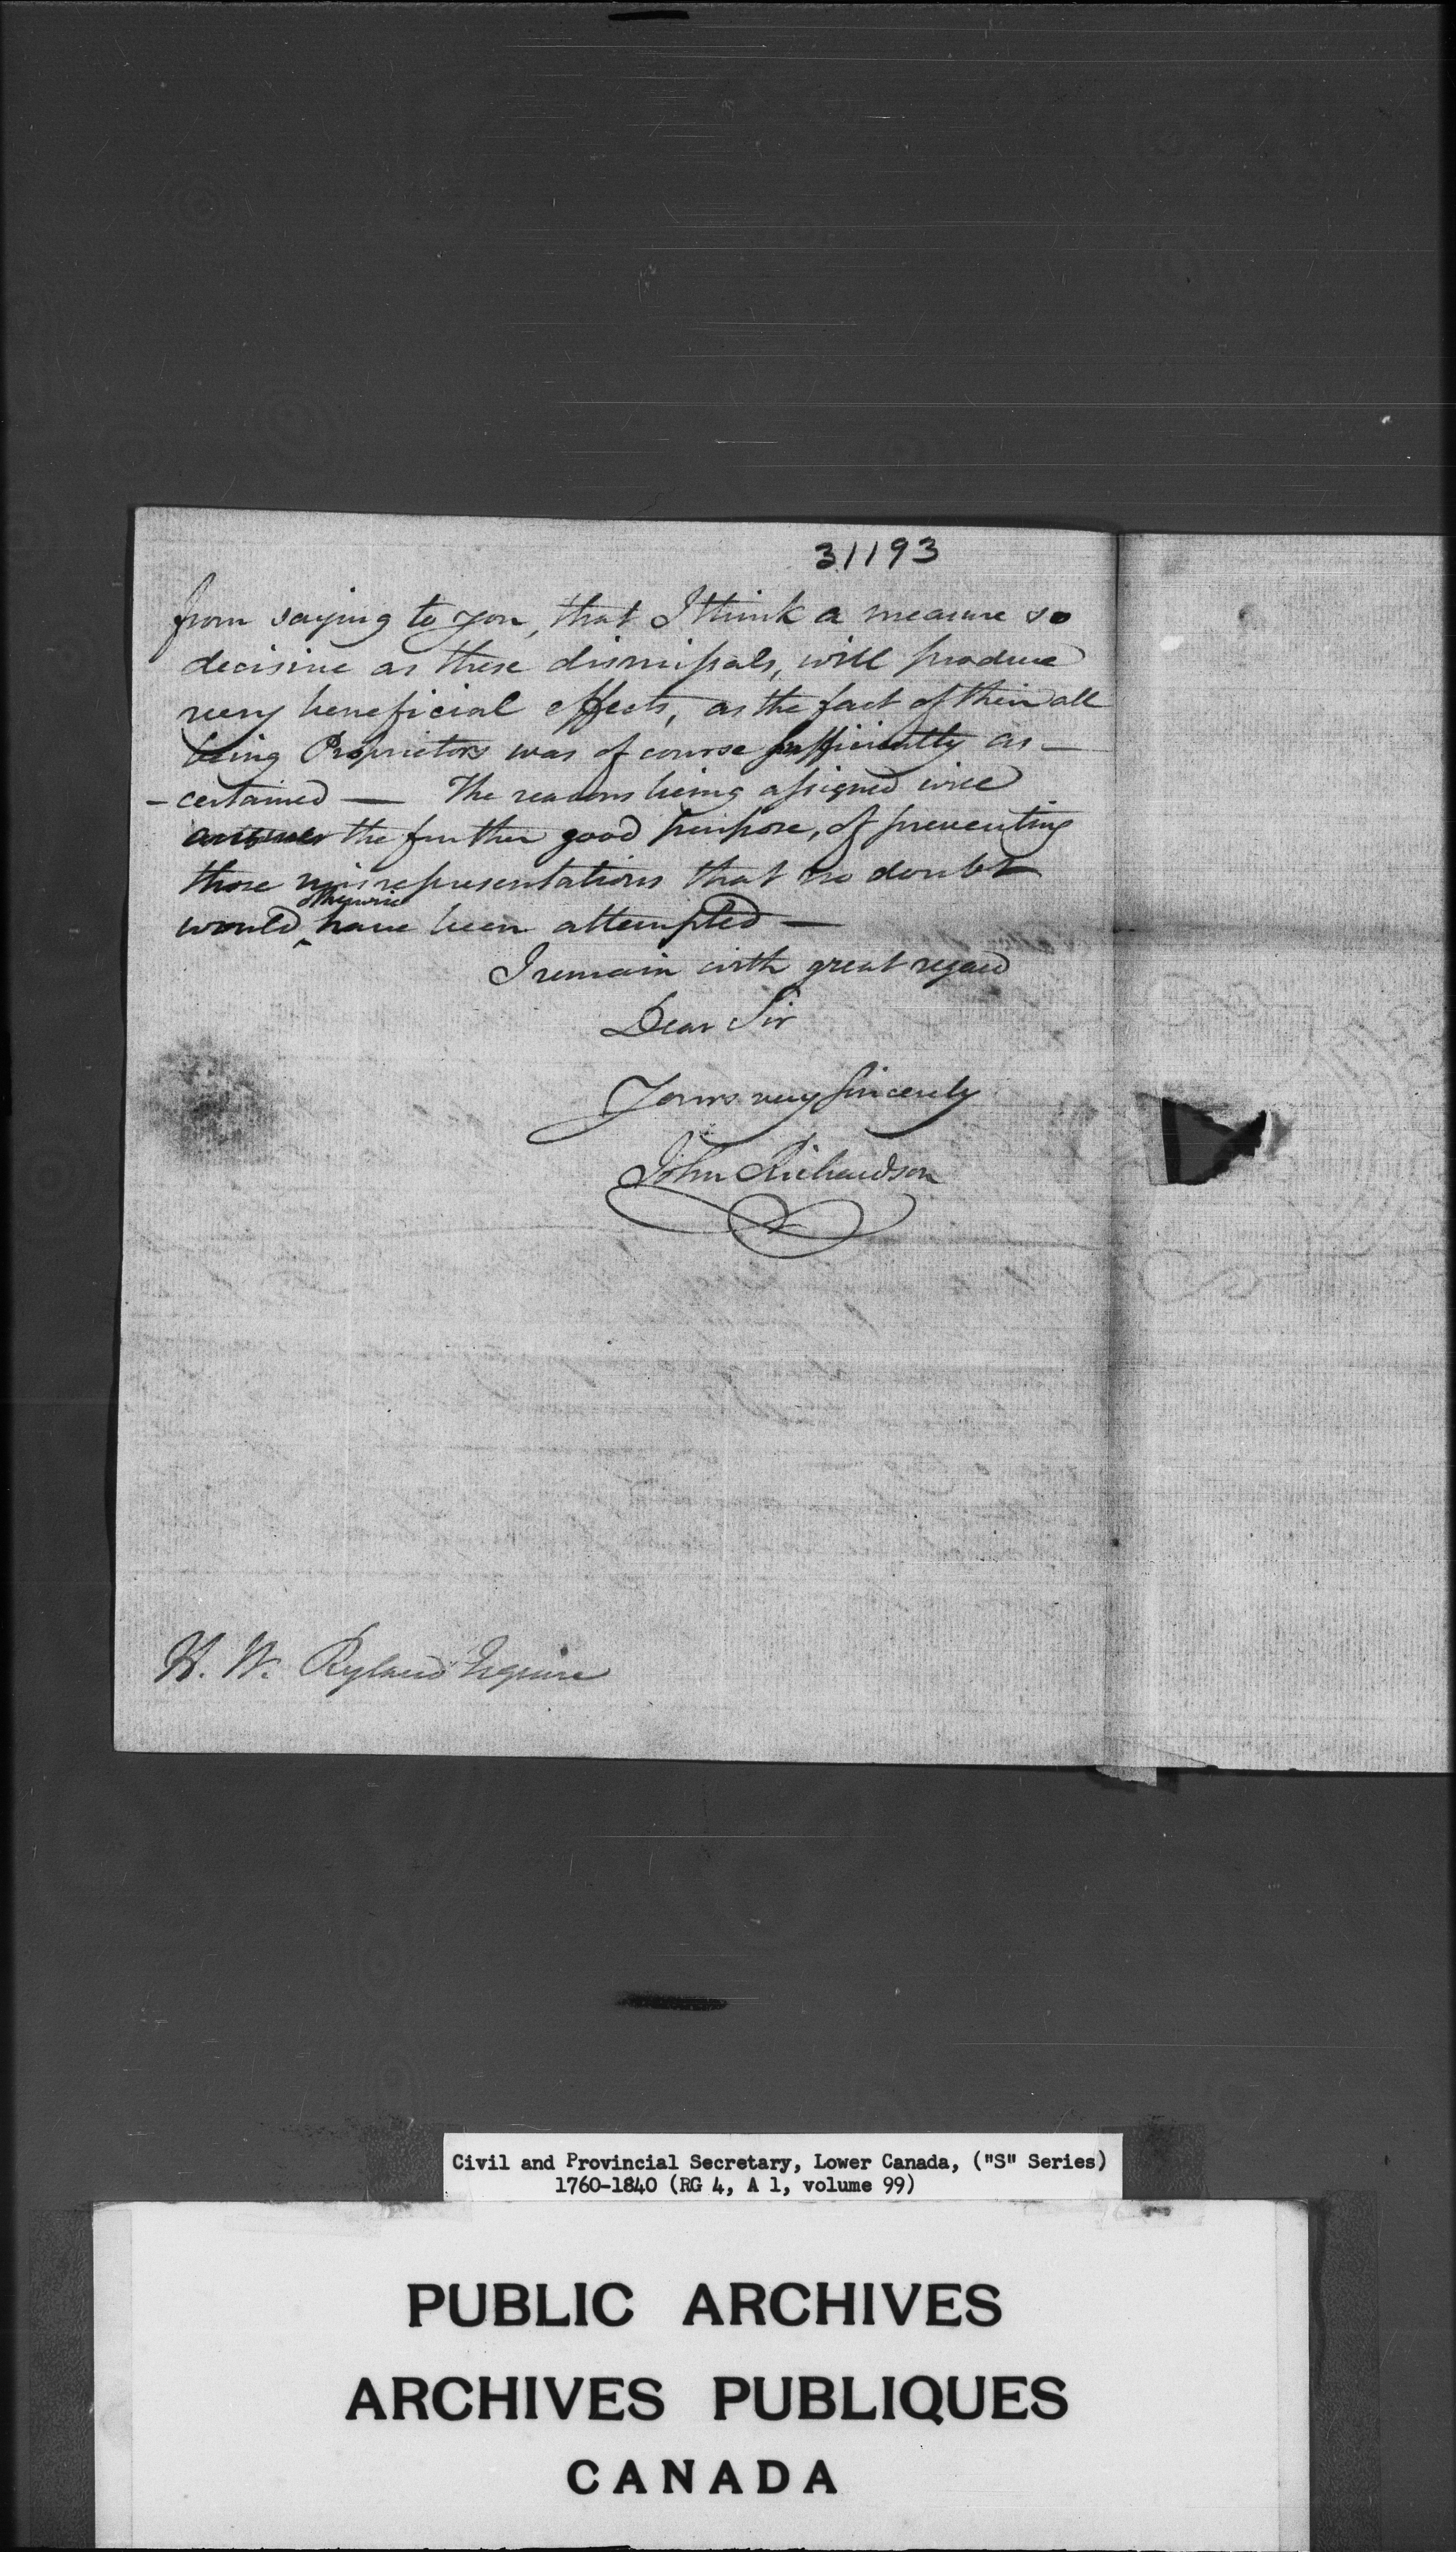 31193
from saying to you, that I think a measure so
decisive as these dismissals, will produce
very beneficial effects, as the fact of their all
being Proprietors was of course sufficiently as-
-certained — The reasons being assigned will
answer the further good purpose, of preventing
those misrepresentations that no doubt
would otherwise have been attempted —
I remain with great regard
Dear Sir
Yours very Sincerely
John Richardson
H. W. Ryland Esquire
Civil and Provincial Secretary, Lower Canada, ("S" Series)
1760-1840 (RG 4, A 1, volume 99)
PUBLIC ARCHIVES
ARCHIVES PUBLIQUES
CANADA